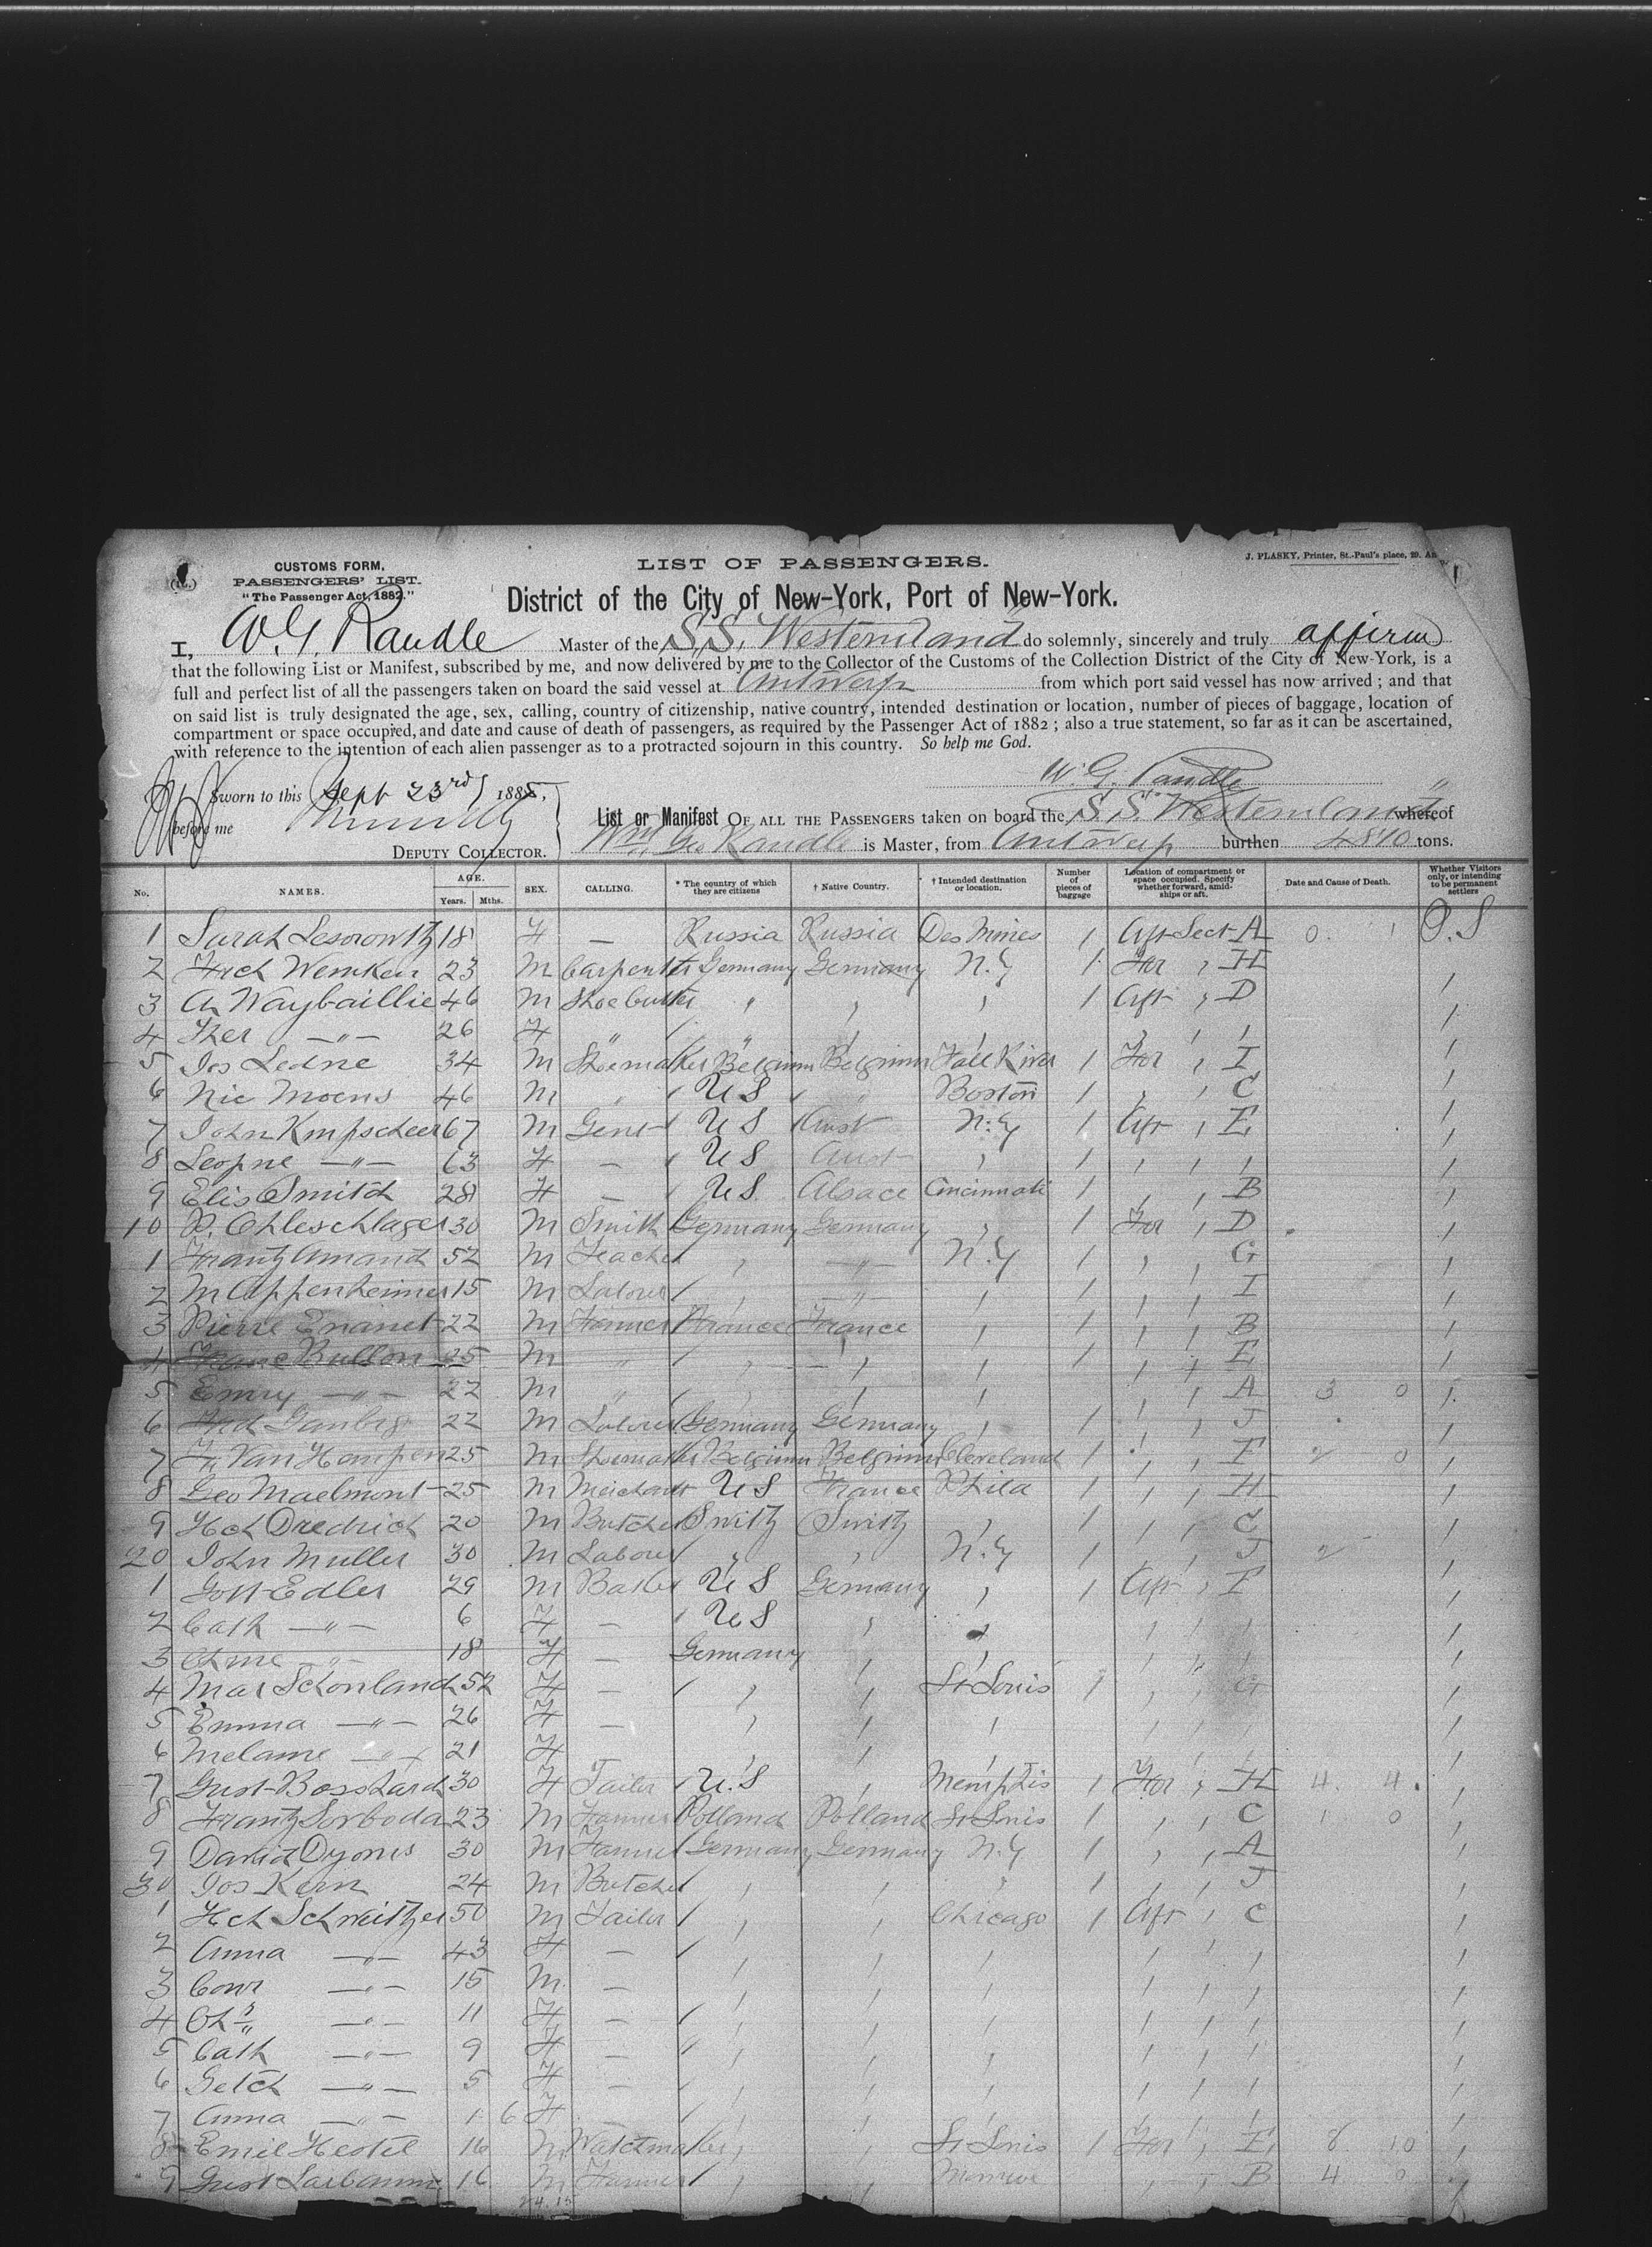 CUSTOMS FORM,
PASSENGERS' LIST.
"The Passenger Act, 1882."
LIST OF PASSENGERS.
J. PLASKY, Printer, St.-Paul's place, 29. An
District of the City of New-York, Port of New-York.
I, W. G. Randle Master of the S.S. Westernland do solemnly, sincerely and truly affirm
that the following List or Manifest, subscribed by me, and now delivered by me to the Collector of the Customs of the Collection District of the City of New-York, is a
full and perfect list of all the passengers taken on board the said vessel at Antwerp from which port said vessel has now arrived ; and that
on said list is truly designated the age, sex, calling, country of citizenship, native country, intended destination or location, number of pieces of baggage, location of
compartment or space occupied, and date and cause of death of passengers, as required by the Passenger Act of 1882 ; also a true statement, so far as it can be ascertained,
with reference to the intention of each alien passenger as to a protracted sojourn in this country. So help me God.
W. G. Randle
Sworn to this Sept 23rd 1885,
before me
DEPUTY COLLECTOR.
List or Manifest OF ALL THE PASSENGERS taken on board the S.S. Westernland whereof
Wm Geo Randle is Master, from Antwerp burthen tons.
No. NAMES. AGE. Years. Mths. SEX. CALLING. * The country of which they are citizens † Native Country. † Intended destination or location. Number of pieces of baggage Location of compartment or space occupied. Specify whether forward, amidships or aft. Date and Cause of Death. Whether Visitors only, or intending to be permanent settlers
1 Sarah Lesorowitz 18 F — Russia Russia Des Mines 1 Aft Sect A 0. 1 P.S
2 Fred Wemken 23 M Carpenter Germany Germany N.Y 1 For " H
3 A. Waybaillie 46 M " " " 1 Aft " D
4 Ther —"— 26 F " " " "
5 Jos Ledne 34 M Shoemaker Belgium Belgium Fall River 1 For " I
6 Nic Moens 46 M " U S " Boston 1 " " C
7 John Kmpscheer 67 M Gent U S Aust N.Y 1 Aft " E
8 Leopne —"— 63 F — U S Aust " 1 " " "
9 Elis Smith 28 F — U S. Alsace Cincinnati 1 " " B
10 P. Ohleschlager 30 M Smith Germany Germany " 1 For " D
1 Frantz Amand 52 M Teacher " —"— N.Y 1 " " G
2 M Oppenheimer 15 M Labourer " —"— " 1 " " I
3 Pierre Enanet 22 M Farmer France France " 1 " " B
4 Bullon 25 M " " " " 1 " " E
5 Emry —"— 22 M " " " " " " A 3 0
6 Fred 22 M Labourer Germany Germany " 1 " " J
7 F. Van Hempen 25 M Shoemaker Belgium Belgium Cleveland 1 " " F 2 0
8 Geo Maelmont 25 M Merchant U S France Phila 1 " " H
9 Hch Dredrich 20 M Butcher Switz Switz " 1 " " C
20 John Muller 30 M Labourer " " N.Y 1 " " J 2
1 Gott Edler 29 M Baker U S Germany " 1 Aft " F
2 Cath —"— 6 F — U S " " " " "
3 18 F — Germany " " " " "
4 Mar Schonland 52 F — " " St Louis 1 " " G
5 Emma —"— 26 F — " " " " " "
6 Melanie —"— 21 F " " " " " "
7 Gust Bosshard 30 F Tailor U.S " Memphis 1 For " H 4. 4.
8 Frantz Sorboda 23 M Farmer Polland Polland St Louis 1 " " C 1 0
9 David Dyonis 30 M Farmer Germany Germany N.Y 1 " " A
30 Jos Kern 24 M Butcher " " " 1 " " J
1 Hch Schweitzer 50 M Tailor " " Chicago 1 Aft " C
2 Anna —"— 43 F — " " " " " "
3 Conr —"— 15 M — " " " " " "
4 —"— 11 F — " " " " " "
5 Cath —"— 9 F — " " " " " "
6 Getch —"— 5 F — " " " " " "
7 Anna —"— 1 6 F — " " " " " "
8 Emil Hestel 16 M Watchmaker " " St Louis 1 For " E 8 10
9 Gust 16 M Farmer " " Monroe " " B 4 0